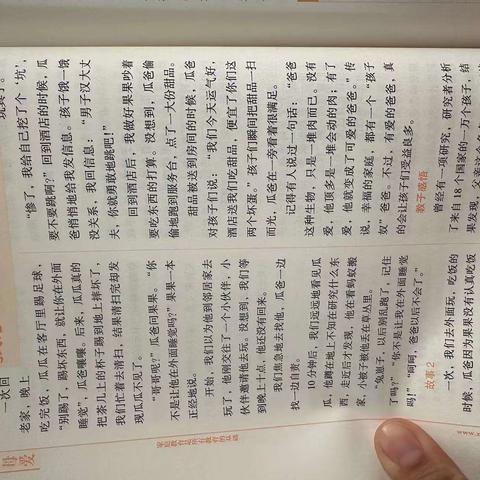 母爱
家庭教育是所有教育的基础
一次回
老家，晚上
吃完饭，瓜瓜在客厅里踢足球，
“别踢了，踢坏东西，就让你在外面
睡觉”，瓜爸嘟囔。后来，瓜瓜真的
把茶几上的杯子踢到地上摔坏了，
我们忙着去清扫，结果清扫完却发
现瓜瓜不见了。
“哥哥呢？”瓜爸问果果。“你
不是让他在外面睡觉吗？”果果一本
正经地说。
开始，我们以为他到邻居家去
玩了，他刚交往了一个小伙伴，小
伙伴邀请他去玩。没想到，我们等
到晚上十点，他还没有回来。
我们焦急地去找他，瓜爸一边
找一边自责。
10分钟后，我们远远地看见瓜
瓜，他蹲在地上不知在研究什么东
西，走近后才发现，他在看蚂蚁搬
家，小被子被他丢在草丛里。
“兔崽子，以后别乱跑了，记住
了吗？”“你不是让我在外面睡觉
吗！”“呵呵，爸爸以后不会了。”
故事2
一次，我们去外面玩，吃饭的
时候，瓜爸因为果果没有认真吃饭
“惨了，我给自己挖了个‘坑’，
要不要跳啊？”回到酒店的时候，瓜
爸悄悄地给我发信息。孩子饿一饿
没关系，我回信息：“男子汉大丈
夫，你就勇敢地跳吧！”
回到酒店后，我做好果果吵着
要吃东西的打算。没想到，瓜爸偷
偷地跑到服务台，点了一大份甜品。
甜品被送到房间的时候，瓜爸
对孩子们说：“我们今天运气好，
酒店送我们吃甜品，便宜了你们这
两个坏蛋。”孩子们瞬间把甜品一扫
而光，瓜爸在一旁看着很满足。
记得有人说过一句话：“爸爸
这种生物，只是一堆肉而已。没有
爱，他顶多是一堆会动的肉；有了
爱，他就变成了可爱的爸爸。”传
说，幸福的家庭，都有一个“孩子
奴”爸爸。不过，有爱的爸爸，真
的会让孩子们受益良多。
教子感悟
曾经有一项研究，研究者分析
了来自18个国家的一万个孩子，结